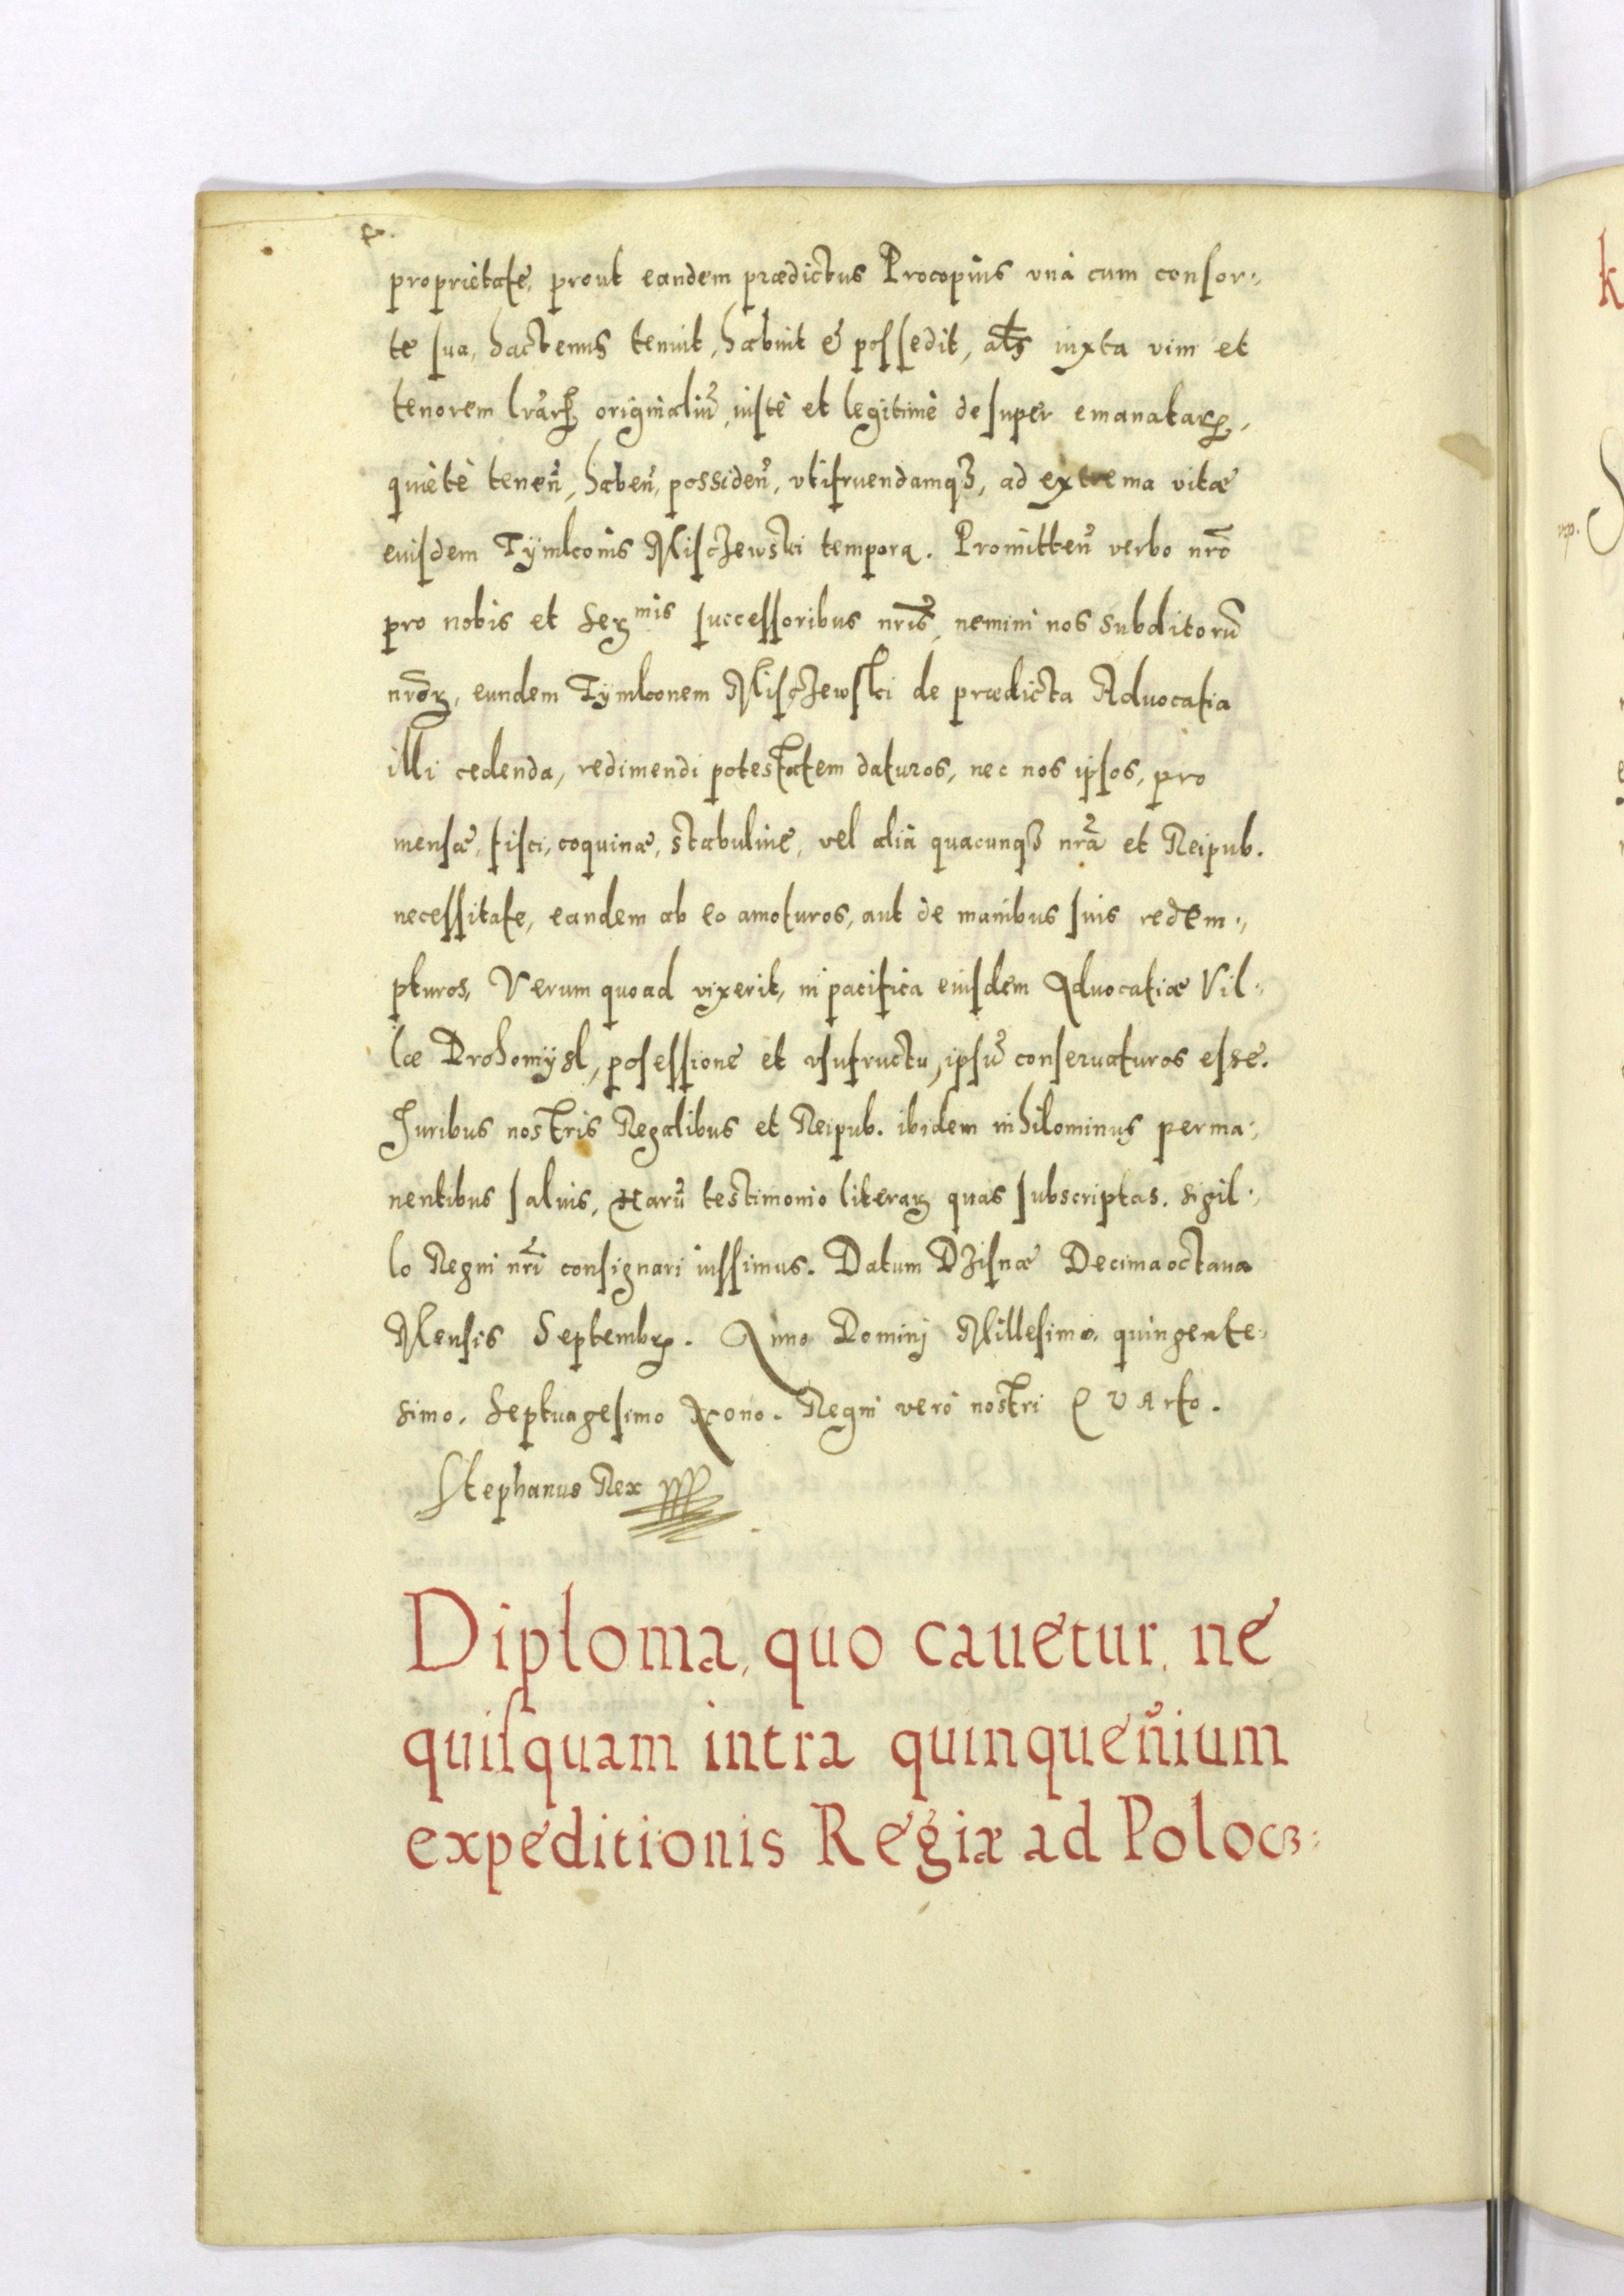 proprietate, prout eandem prædictus Procopius vnà cum consor:,
te sua, hactenus tenuit, habuit & possedit, ałs iuxta vim et
tenorem lrãrꝝ originaliũ, iustè et legitimè desuper emanatarꝝ,
quietè teneñ, habeñ, possideñ, vtifruendamqꝫ, ad extrema vitæ
eiusdem Tÿmkonis Misczewski tempora. Promitteñ verbo nrõ
pro nobis et Serᵐⁱˢ successoribus nrĩs, nemini nos subditorũ
nrõꝝ, eundem Tÿmkonem Misczewski de prædicta Aduocatia
illi cedenda, redimendi potestatem daturos, nec nos ipsos, pro
mensæ, fisci, coquinæ, stabulinè, vel alià quacunqꝫ nrã et Reipub.
necessitate, eandem ab eo amoturos, aut de manibus suis redem:,
pturos, Verum quoad vixerit, in pacifica eiusdem Aduocatiæ Vil:
læ Drohomÿsl, posessione et vsufructu, ipsũ conseruaturos esse.
Juribus nostris Regalibus et Reipub. ibidem nihilominus perma:,
nentibus saluis, Harũ testimonio literaꝝ quas subscriptas. sigil:,
lo Regni nrĩ consignari iussimus. Datum Dzisnæ Decimaoctaua
Mensis Septembrꝭ. Anno Dominj Millesimo, quingente:,
simo, Septuagesimo Nono. Regni verò nostri QVArto.
Stephanus Rex
Diploma, quo cauetur, ne
quisquam intra quinqueñium
expeditionis Regiæ ad Poloc3: